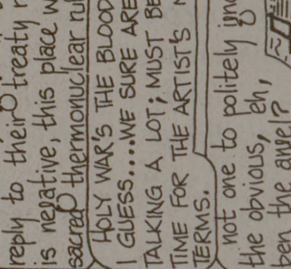 reply to their treaty
is negative, this place
sacred thermonuclear
HOLY WAR'S THE BLOOD
I GUESS....WE SURE ARE
TALKING A LOT; MUST BE
TIME FOR THE ARTIST'S
TERMS.
not one to politely
the obvious, eh,
ben the